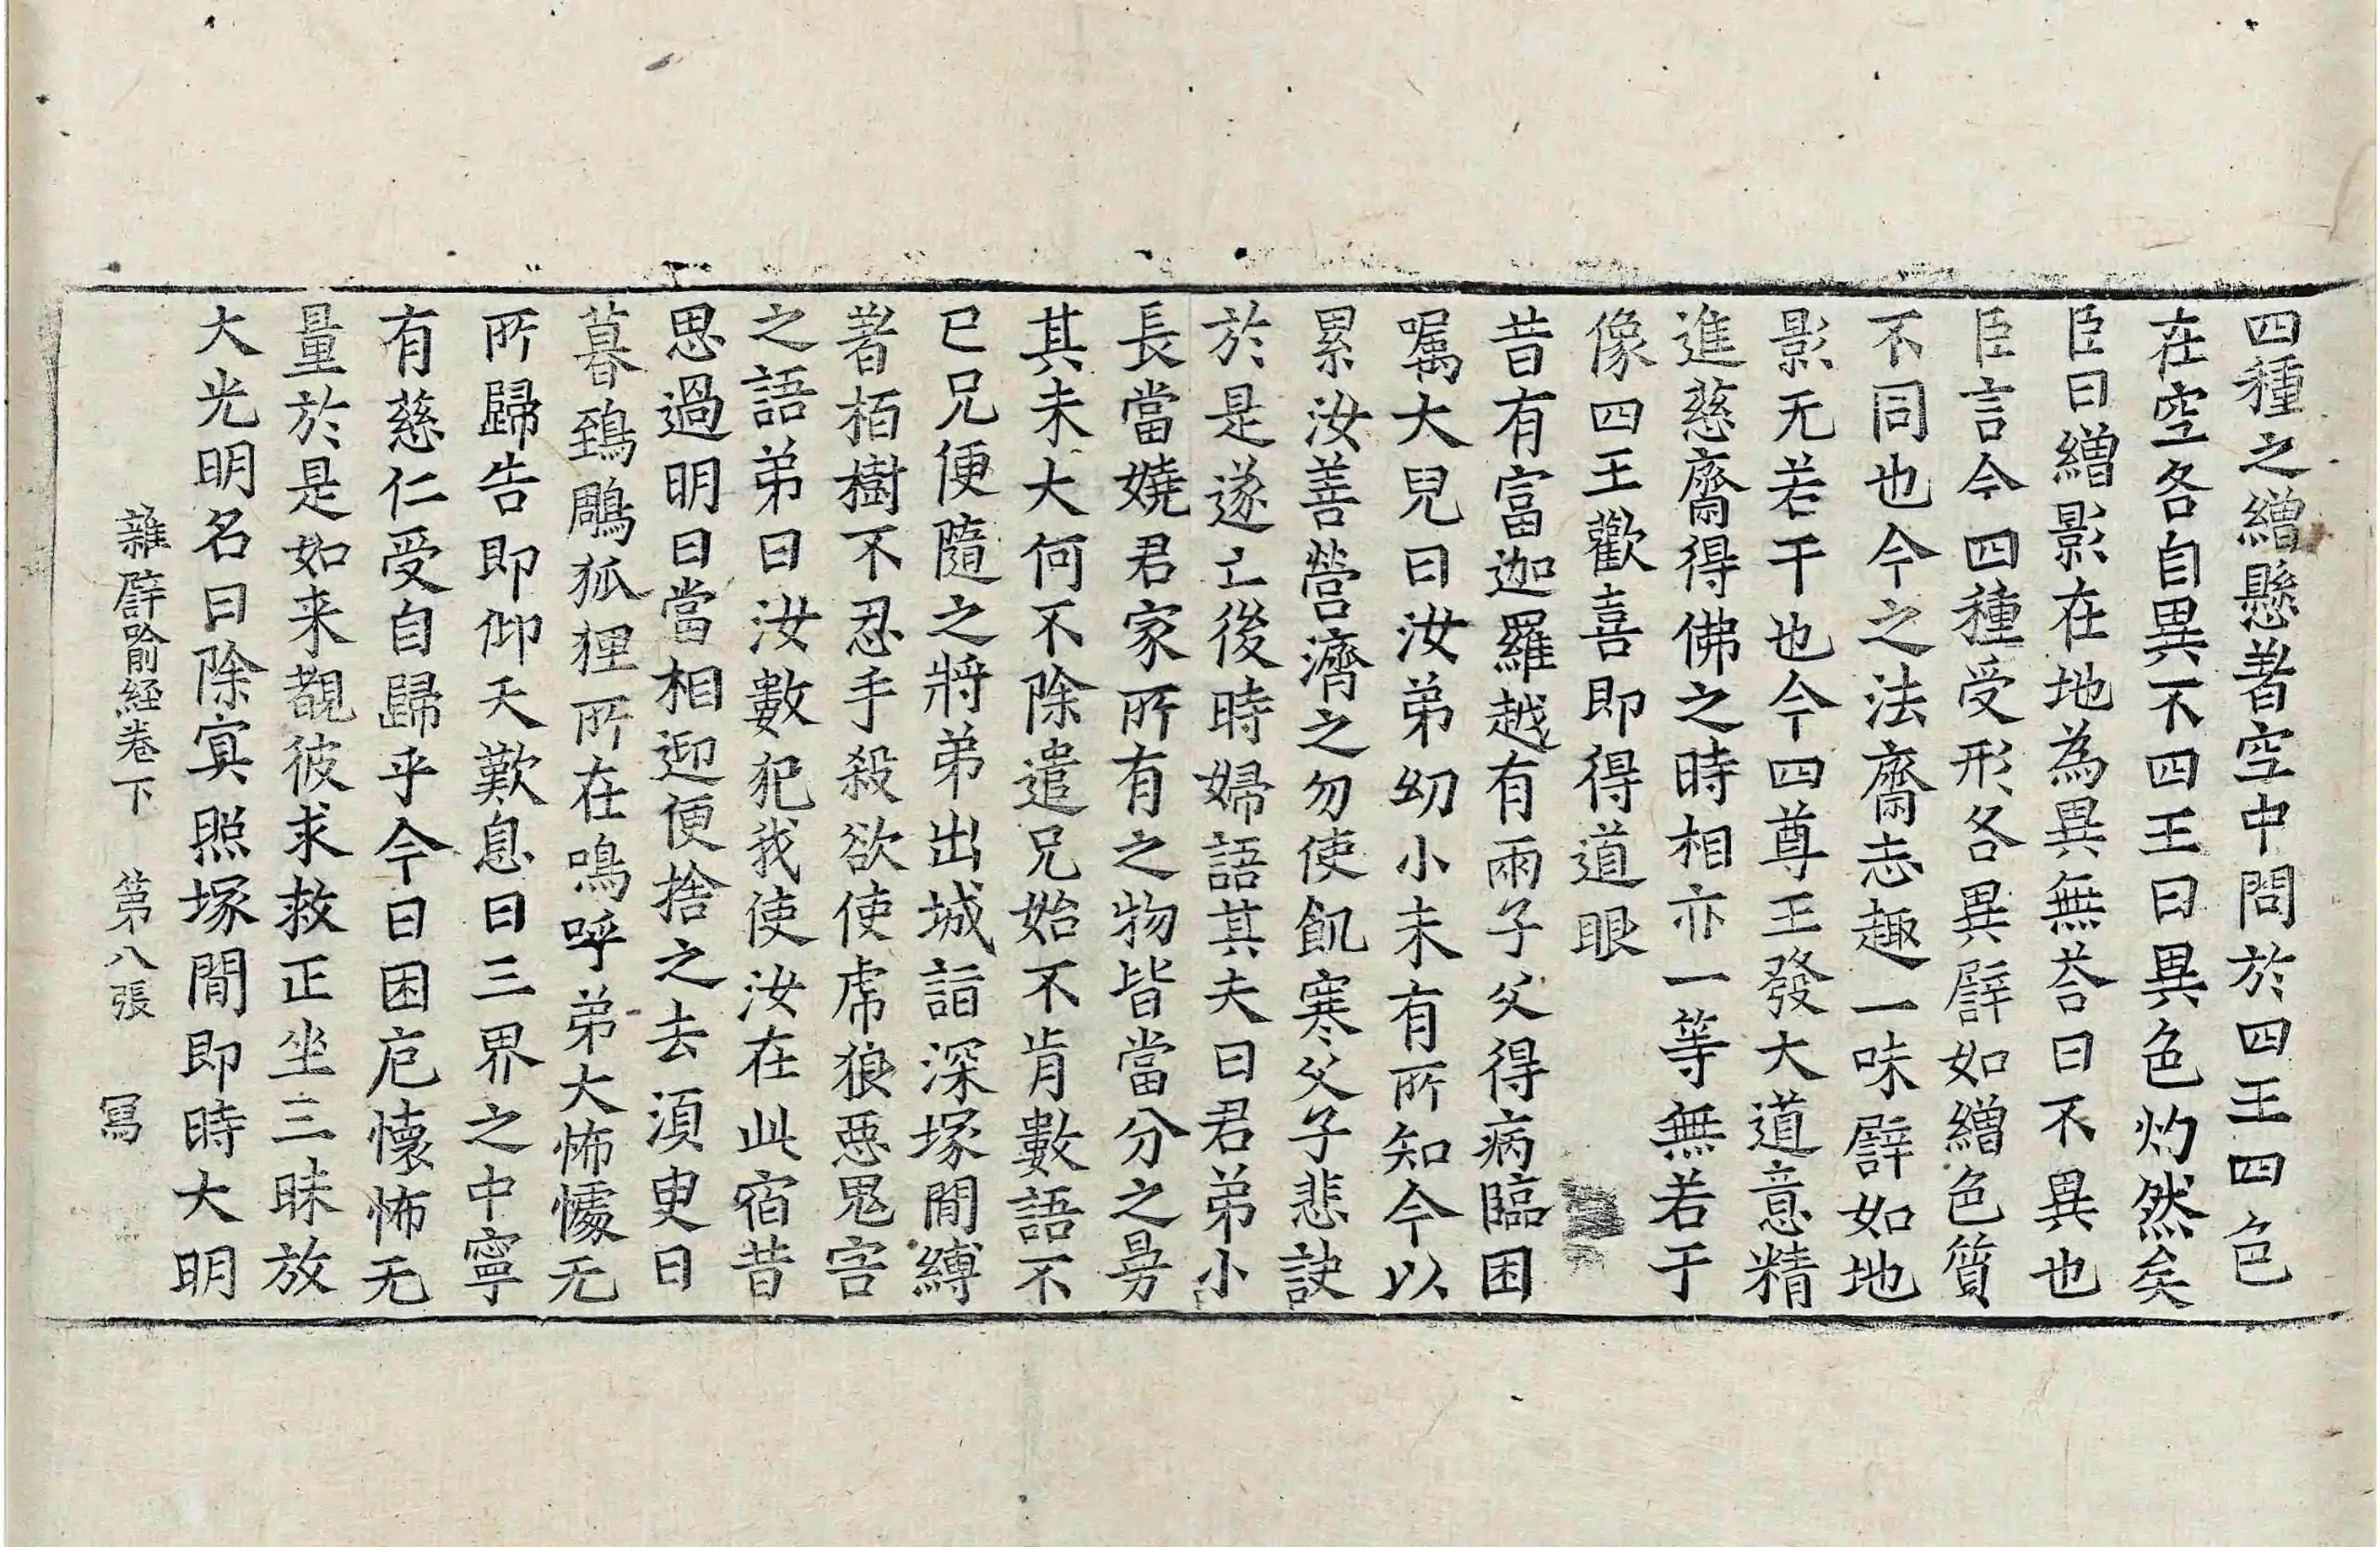 四種之繒懸著空中問於四王四色
在空各自異不四王曰異色灼然矣
臣曰繒影在地為異無荅曰不異也
臣言今四種受形各異譬如繒色質
不同也今之法齋志趣一味譬如地
影无若干也今四尊王發大道意精
進慈齋得佛之時相亦一等無若干
像四王歡喜即得道眼
昔有富迦羅越有兩子父得病臨困
囑大兒曰汝弟幼小未有所知今以
累汝善營濟之勿使飢寒父子悲訣
於是遂亡後時婦語其夫曰君弟小
長當嬈君家所有之物皆當分之曼
其未大何不除遣兄始不肯數語不
已兄便隨之將弟出城詣深塚間縛
著栢樹不忍手殺欲使虎狼惡鬼害
之語弟曰汝數犯我使汝在此宿昔
思過明日當相迎便捨之去須臾日
暮鵄鵰狐狸所在鳴呼弟大怖懅无
所歸告即仰天歎息曰三界之中寧
有慈仁受自歸乎今日困厄懐怖无
量於是如来覩彼求救正坐三昧放
大光明名曰除冥照塚間即時大明
雜譬喻経卷下　第八張　冩